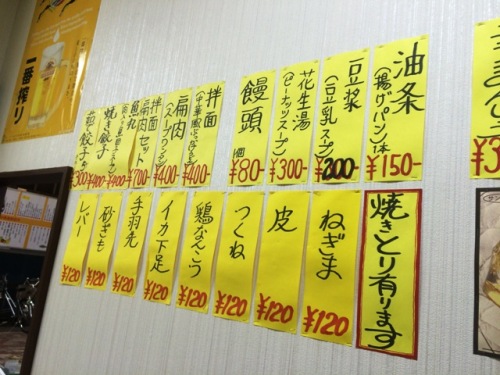 一番搾り
油条
(揚げパン)1本
¥150-
豆浆
(豆乳スープ)
¥200
花生湯
(ピーナッツスープ)
¥300-
饅頭
1個
¥80-
拌面
¥400-
扁肉
(スープワンタン)
¥400-
拌面
扁肉セット
¥700-
魚丸
¥400-
焼き餃子
¥400-
¥300
焼きとり有ります
ねぎま
¥120
皮
¥120
つくね
¥120
鶏なんこつ
¥120
イカ下足
¥120
手羽先
¥120
砂ぎも
¥120
レバー
¥120